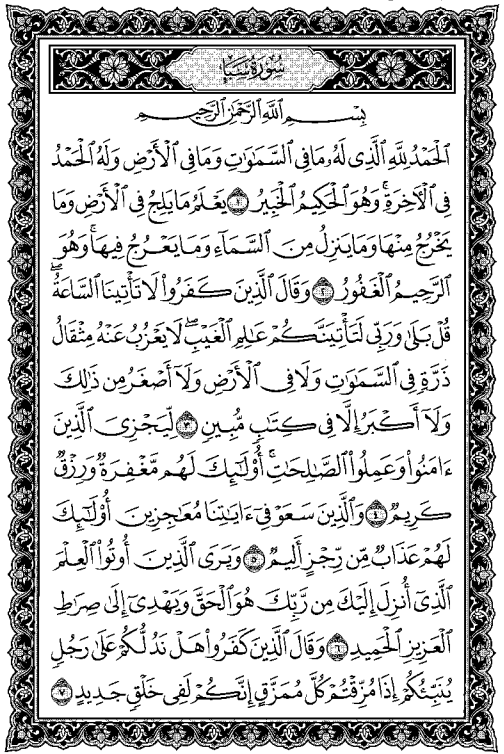 سُورَةُ سَبَإٍ
بِسۡمِ ٱللَّهِ ٱلرَّحۡمَٰنِ ٱلرَّحِيمِ
ٱلۡحَمۡدُ لِلَّهِ ٱلَّذِي لَهُۥ مَا فِي ٱلسَّمَٰوَٰتِ وَمَا فِي ٱلۡأَرۡضِ وَلَهُ ٱلۡحَمۡدُ
فِي ٱلۡأٓخِرَةِۚ وَهُوَ ٱلۡحَكِيمُ ٱلۡخَبِيرُ ١ يَعۡلَمُ مَا يَلِجُ فِي ٱلۡأَرۡضِ وَمَا
يَخۡرُجُ مِنۡهَا وَمَا يَنزِلُ مِنَ ٱلسَّمَآءِ وَمَا يَعۡرُجُ فِيهَاۚ وَهُوَ
ٱلرَّحِيمُ ٱلۡغَفُورُ ٢ وَقَالَ ٱلَّذِينَ كَفَرُواْ لَا تَأۡتِينَا ٱلسَّاعَةُۖ
قُلۡ بَلَىٰ وَرَبِّي لَتَأۡتِيَنَّكُمۡ عَٰلِمِ ٱلۡغَيۡبِۖ لَا يَعۡزُبُ عَنۡهُ مِثۡقَالُ
ذَرَّةٖ فِي ٱلسَّمَٰوَٰتِ وَلَا فِي ٱلۡأَرۡضِ وَلَآ أَصۡغَرُ مِن ذَٰلِكَ
وَلَآ أَكۡبَرُ إِلَّا فِي كِتَٰبٖ مُّبِينٖ ٣ لِّيَجۡزِيَ ٱلَّذِينَ
ءَامَنُواْ وَعَمِلُواْ ٱلصَّٰلِحَٰتِۚ أُوْلَٰٓئِكَ لَهُم مَّغۡفِرَةٞ وَرِزۡقٞ
كَرِيمٞ ٤ وَٱلَّذِينَ سَعَوۡ فِيٓ ءَايَٰتِنَا مُعَٰجِزِينَ أُوْلَٰٓئِكَ
لَهُمۡ عَذَابٞ مِّن رِّجۡزٍ أَلِيمٞ ٥ وَيَرَى ٱلَّذِينَ أُوتُواْ ٱلۡعِلۡمَ
ٱلَّذِيٓ أُنزِلَ إِلَيۡكَ مِن رَّبِّكَ هُوَ ٱلۡحَقَّ وَيَهۡدِيٓ إِلَىٰ صِرَٰطِ
ٱلۡعَزِيزِ ٱلۡحَمِيدِ ٦ وَقَالَ ٱلَّذِينَ كَفَرُواْ هَلۡ نَدُلُّكُمۡ عَلَىٰ رَجُلٖ
يُنَبِّئُكُمۡ إِذَا مُزِّقۡتُمۡ كُلَّ مُمَزَّقٍ إِنَّكُمۡ لَفِي خَلۡقٖ جَدِيدٍ ٧